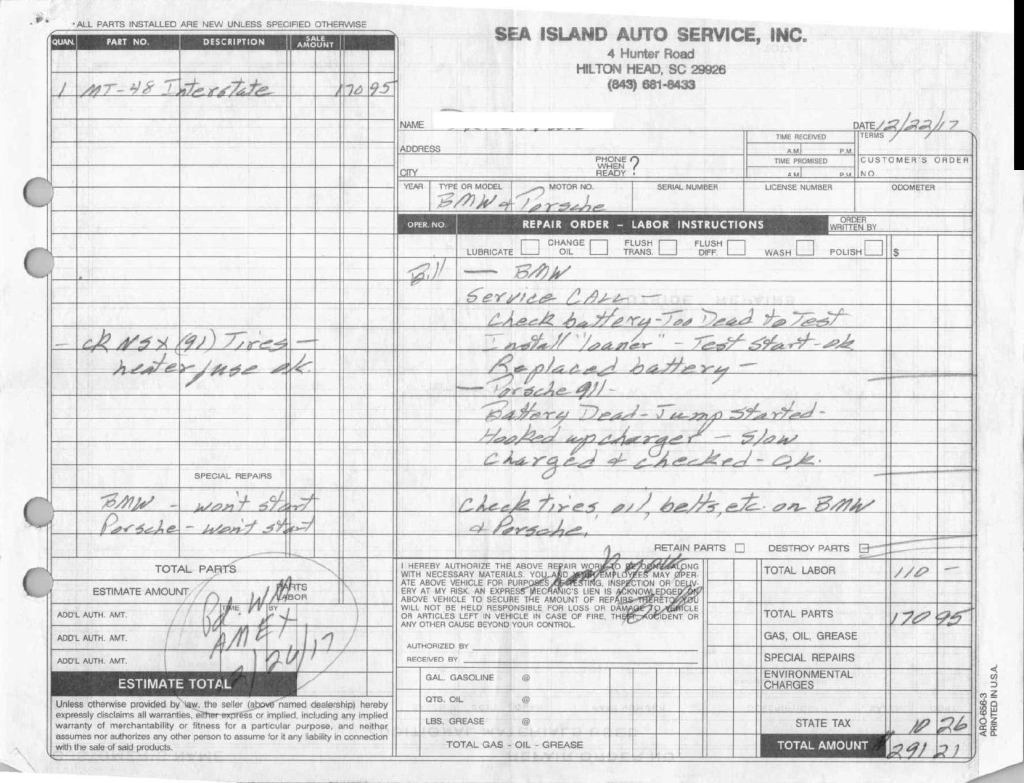 *ALL PARTS INSTALLED ARE NEW UNLESS SPECIFIED OTHERWISE
QUAN. PART NO. DESCRIPTION SALE AMOUNT
1 MT-48 Interstate 170 95
CK NSX (91) Tires -
heater fuse ok.
SPECIAL REPAIRS
BMW - won't start
Porsche - won't start
TOTAL PARTS
ESTIMATE AMOUNT PARTS LABOR
ADD'L AUTH. AMT. TIME BY
ADD'L AUTH. AMT.
ADD'L AUTH. AMT.
Pd. w/
AMEX
12/26/17
ESTIMATE TOTAL
Unless otherwise provided by law, the seller (above named dealership) hereby
expressly disclaims all warranties, either express or implied, including any implied
warranty of merchantability or fitness for a particular purpose, and neither
assumes nor authorizes any other person to assume for it any liability in connection
with the sale of said products.
SEA ISLAND AUTO SERVICE, INC.
4 Hunter Road
HILTON HEAD, SC 29926
(843) 681-8433
NAME DATE 12/22/17
ADDRESS TIME RECEIVED A.M. P.M. TERMS
CITY PHONE WHEN READY? TIME PROMISED A.M. P.M. CUSTOMER'S ORDER NO.
YEAR TYPE OR MODEL MOTOR NO. SERIAL NUMBER LICENSE NUMBER ODOMETER
BMW & Porsche
OPER. NO. REPAIR ORDER - LABOR INSTRUCTIONS ORDER WRITTEN BY
LUBRICATE CHANGE OIL FLUSH TRANS. FLUSH DIFF. WASH POLISH $
Bill — BMW
Service CALL -
Check battery - Too Dead to Test
Install "loaner" - Test Start - ok
Replaced battery -
— Porsche 911 -
Battery Dead - Jump Started -
Hooked up charger - Slow
Charged & checked - O.K.
Check tires, oil, belts, etc. on BMW
& Porsche.
RETAIN PARTS DESTROY PARTS
I HEREBY AUTHORIZE THE ABOVE REPAIR WORK TO BE DONE ALONG
WITH NECESSARY MATERIALS. YOU AND YOUR EMPLOYEES MAY OPER-
ATE ABOVE VEHICLE FOR PURPOSES OF TESTING, INSPECTION OR DELIV-
ERY AT MY RISK. AN EXPRESS MECHANIC'S LIEN IS ACKNOWLEDGED ON
ABOVE VEHICLE TO SECURE THE AMOUNT OF REPAIRS THERETO. YOU
WILL NOT BE HELD RESPONSIBLE FOR LOSS OR DAMAGE TO VEHICLE
OR ARTICLES LEFT IN VEHICLE IN CASE OF FIRE, THEFT, ACCIDENT OR
ANY OTHER CAUSE BEYOND YOUR CONTROL.
AUTHORIZED BY
RECEIVED BY
GAL. GASOLINE @
QTS. OIL @
LBS. GREASE @
TOTAL GAS - OIL - GREASE
TOTAL LABOR 110 -
TOTAL PARTS 170 95
GAS, OIL, GREASE
SPECIAL REPAIRS
ENVIRONMENTAL CHARGES
STATE TAX 10 26
TOTAL AMOUNT $291 21
ARO-656-3
PRINTED IN U.S.A.